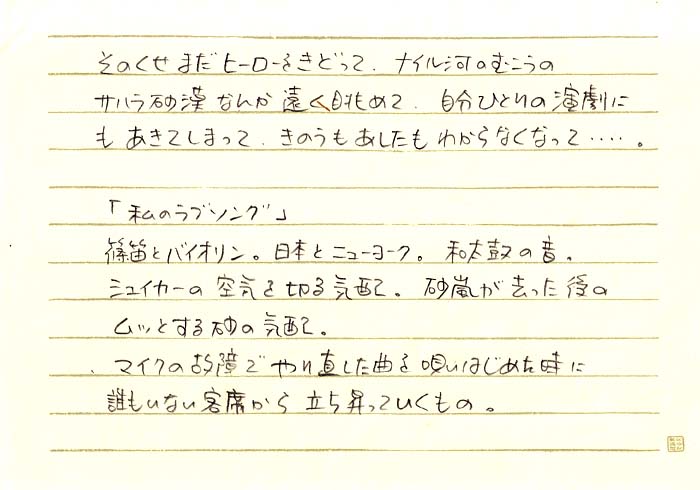 そのくせまだヒーローをきどって、ナイル河のむこうの
サハラ砂漠なんか遠く眺めて、自分ひとりの演劇に
もあきてしまって、きのうもあしたもわからなくなって‥‥。
「私のラブソング」
篠笛とバイオリン。日本とニューヨーク。和太鼓の音。
シェイカーの空気を切る気配。砂嵐が去った後の
ムッとする砂の気配。
マイクの故障でやり直した曲を唄いはじめた時に
誰もいない客席から立ち昇っていくもの。